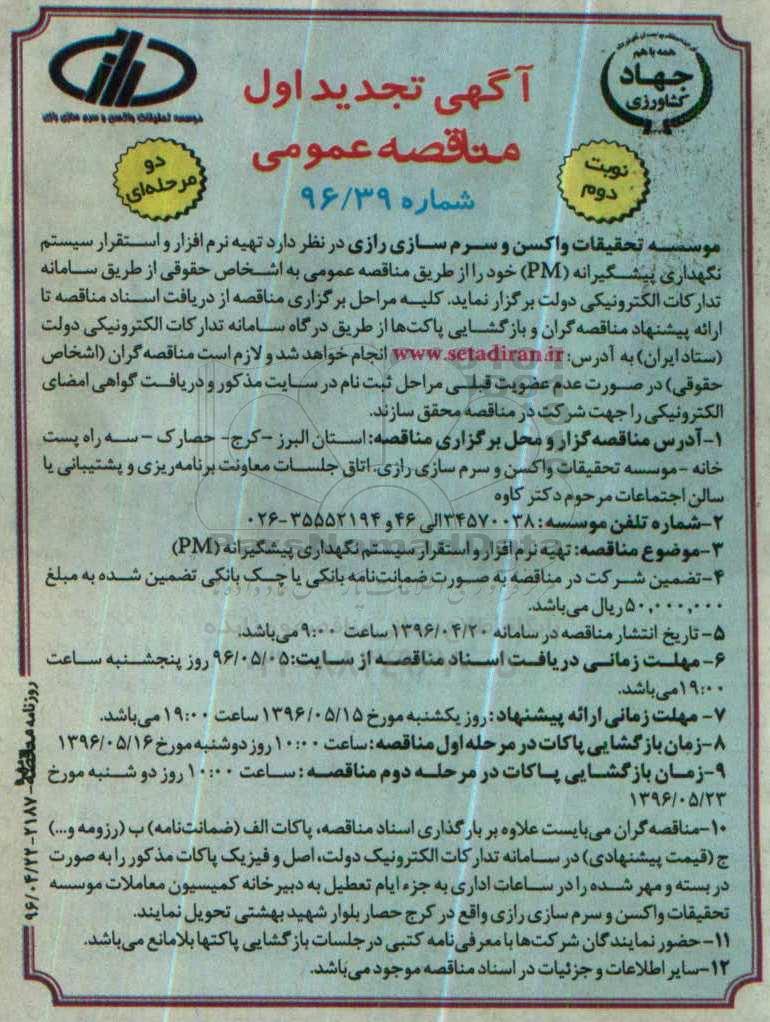 همه با هم
جهاد
کشاورزی
موسسه تحقیقات واکسن و سرم سازی رازی
آگهی تجدید اول
مناقصه عمومی
شماره ۹۶/۳۹
نوبت
دوم
دو
مرحله‌ای
موسسه تحقیقات واکسن و سرم سازی رازی در نظر دارد تهیه نرم افزار و استقرار سیستم
نگهداری پیشگیرانه (PM) خود را از طریق مناقصه عمومی به اشخاص حقوقی از طریق سامانه
تدارکات الکترونیکی دولت برگزار نماید. کلیه مراحل برگزاری مناقصه از دریافت اسناد مناقصه تا
ارائه پیشنهاد مناقصه‌گران و بازگشایی پاکت‌ها از طریق درگاه سامانه تدارکات الکترونیکی دولت
(ستاد ایران) به آدرس: www.setadiran.ir انجام خواهد شد و لازم است مناقصه‌گران (اشخاص
حقوقی) در صورت عدم عضویت قبلی مراحل ثبت نام در سایت مذکور و دریافت گواهی امضای
الکترونیکی را جهت شرکت در مناقصه محقق سازند.
۱-آدرس مناقصه‌گزار و محل برگزاری مناقصه: استان البرز -کرج- حصارک - سه راه پست
خانه -موسسه تحقیقات واکسن و سرم سازی رازی. اتاق جلسات معاونت برنامه‌ریزی و پشتیبانی یا
سالن اجتماعات مرحوم دکتر کاوه
۲-شماره تلفن موسسه: ۳۴۵۷۰۰۳۸الی ۴۶ و ۳۵۵۵۲۱۹۴-۰۲۶
۳-موضوع مناقصه: تهیه نرم افزار و استقرار سیستم نگهداری پیشگیرانه (PM)
۴-تضمین شرکت در مناقصه به صورت ضمانت‌نامه بانکی یا چک بانکی تضمین شده به مبلغ
۵۰,۰۰۰,۰۰۰ ریال می‌باشد.
۵- تاریخ انتشار مناقصه در سامانه ۱۳۹۶/۰۴/۲۰ ساعت ۹:۰۰ می‌باشد.
۶- مهلت زمانی دریافت اسناد مناقصه از سایت: ۹۶/۰۵/۰۵ روز پنجشنبه ساعت
۱۹:۰۰ می‌باشد.
۷- مهلت زمانی ارائه پیشنهاد: روز یکشنبه مورخ ۱۳۹۶/۰۵/۱۵ ساعت ۱۹:۰۰ می‌باشد.
۸-زمان بازگشایی پاکات در مرحله اول مناقصه: ساعت ۱۰:۰۰ روز دوشنبه مورخ ۱۳۹۶/۰۵/۱۶
۹-زمان بازگشایی پاکات در مرحله دوم مناقصه: ساعت ۱۰:۰۰ روز دو شنبه مورخ
۱۳۹۶/۰۵/۲۳
۱۰-مناقصه‌گران می‌بایست علاوه بر بارگذاری اسناد مناقصه، پاکات الف (ضمانت‌نامه) ب (رزومه و...)
ج (قیمت پیشنهادی) در سامانه تدارکات الکترونیک دولت، اصل و فیزیک پاکات مذکور را به صورت
در بسته و مهر شده را در ساعات اداری به جزء ایام تعطیل به دبیرخانه کمیسیون معاملات موسسه
تحقیقات واکسن و سرم سازی رازی واقع در کرج حصار بلوار شهید بهشتی تحویل نمایند.
۱۱-حضور نمایندگان شرکت‌ها با معرفی‌نامه کتبی در جلسات بازگشایی پاکتها بلامانع می‌باشد.
۱۲-سایر اطلاعات و جزئیات در اسناد مناقصه موجود می‌باشد.
روزنامه مناقصه - ۲۱۸۷ - ۹۶/۰۴/۲۲
ParsNamadData